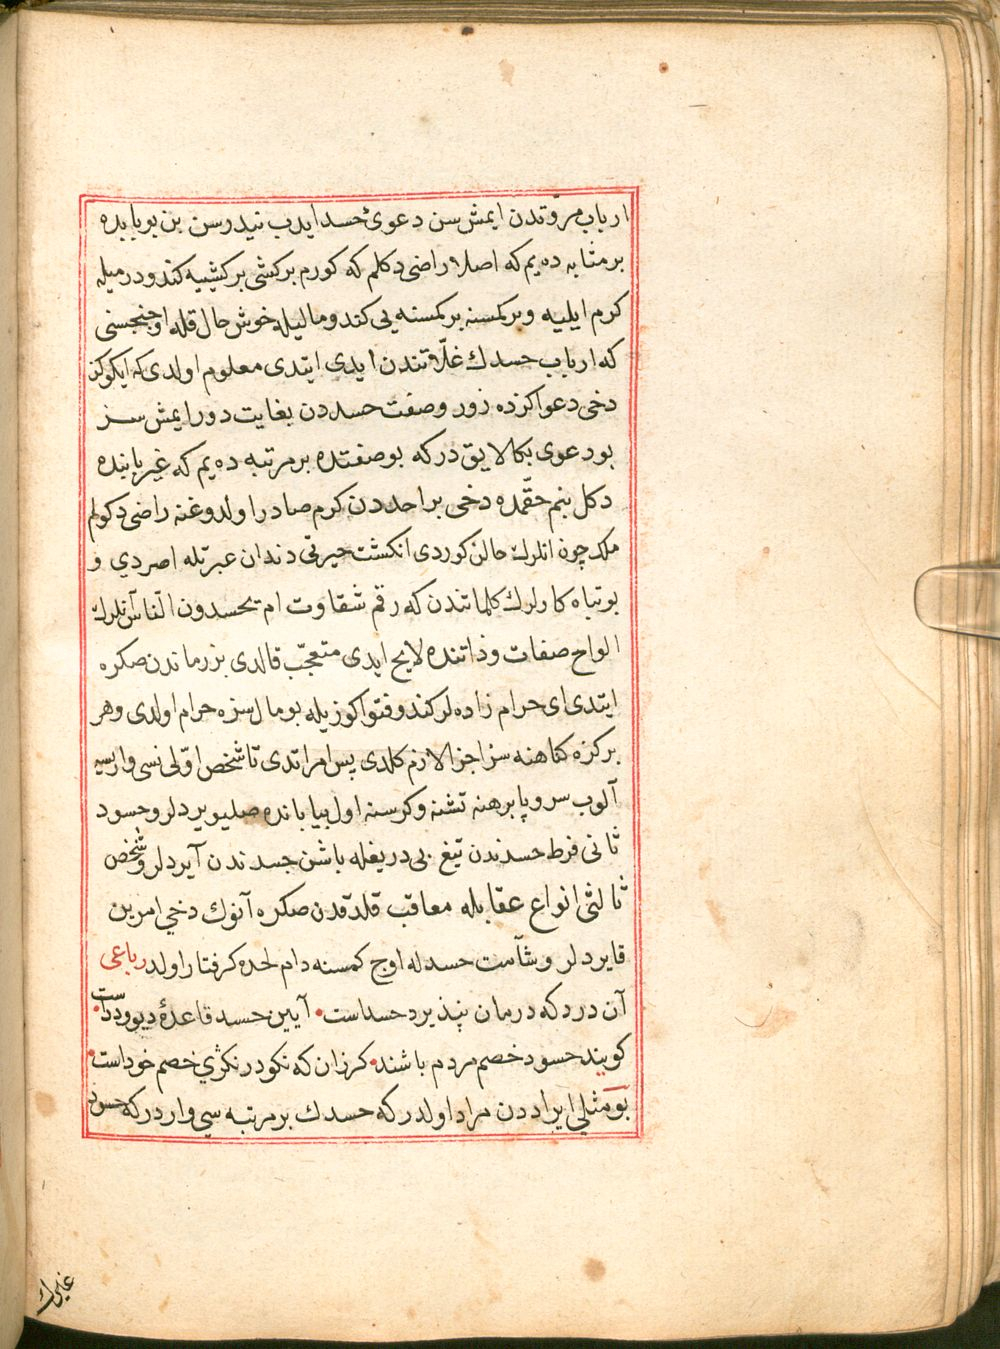 ارباب مروّتدن ایمش سن دعوئ حسد ایدب نیدرسن بن بو بابده
بر مثابه ده یم که اصلا راضی دکلم که کورم بر کشی بر کشییه کندو درمیله
کرم ایلیه و بر کمسنه بر کمسنه یی کندو مالیله خوش حال قله اوجنجسی
که ارباب حسدك غلّاتندن ایدی ایتدی معلوم اولدی که ایکوکز
دخی دعواکزده زور و صفت حسددن بغایت دور ایمش سز
بو دعوی بکا لایق درکه بو صفتده بر مرتبه ده یم که غیر بابنده
دکل بنم حقّمده دخی بر احددن کرم صادر اولدوغنه راضی دکولم
ملك چون انلرك حالن کوردی انکشت حیرتی دندان عبرتله اصردي و
بو تباه کارلرك کلماتندن که رقم شقاوت ام یحسدون النّاس آنلرك
الواح صفات و ذاتنده لایح ایدی متعجّب قالدی بر زماندن صکره
ایتدی ای حرام زاده لر کندو فتواکوزیله بو مال سزه حرام اولدی وهر
برکزه کناهنه سزا جزا لازم کلدی پس امر اتدی تا شخص اوّلی نسی وارسیه
آلوب سر و پا برهنه تشنه و کرسنه اول بیابانده صلیویردلر و حسود
ثانی فرط حسدندن تیغ بی دریغله باشن جسدندن آیردلر و شخص
ثالثی انواع عقابله معاقب قلدقدن صکره آنوك دخي امرین
قایردلر و شآمت حسدله اوج کمسنه دام لحده کرفتار اولدلر رباعی
آن درد که درمان نپذیرد حسداست • آیین حسد قاعدهٔ دیو و دداست •
کویند حسود خصم مردم باشند • کر زان که نکو در نکڗي خصم خوداست •
بو مثلي ایراددن مراد اولدر که حسدك بر مرتبه سي واردر که حسود
غیرك